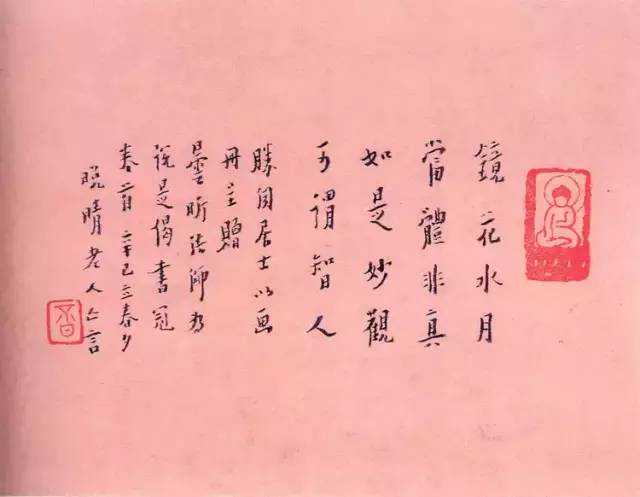 鏡花水月
當體非真
如是妙觀
可謂智人
勝居士以画
冊贈
曇昕法師為
說是偈書冠
卷首辛巳立春夕
晚晴老人亡言
音